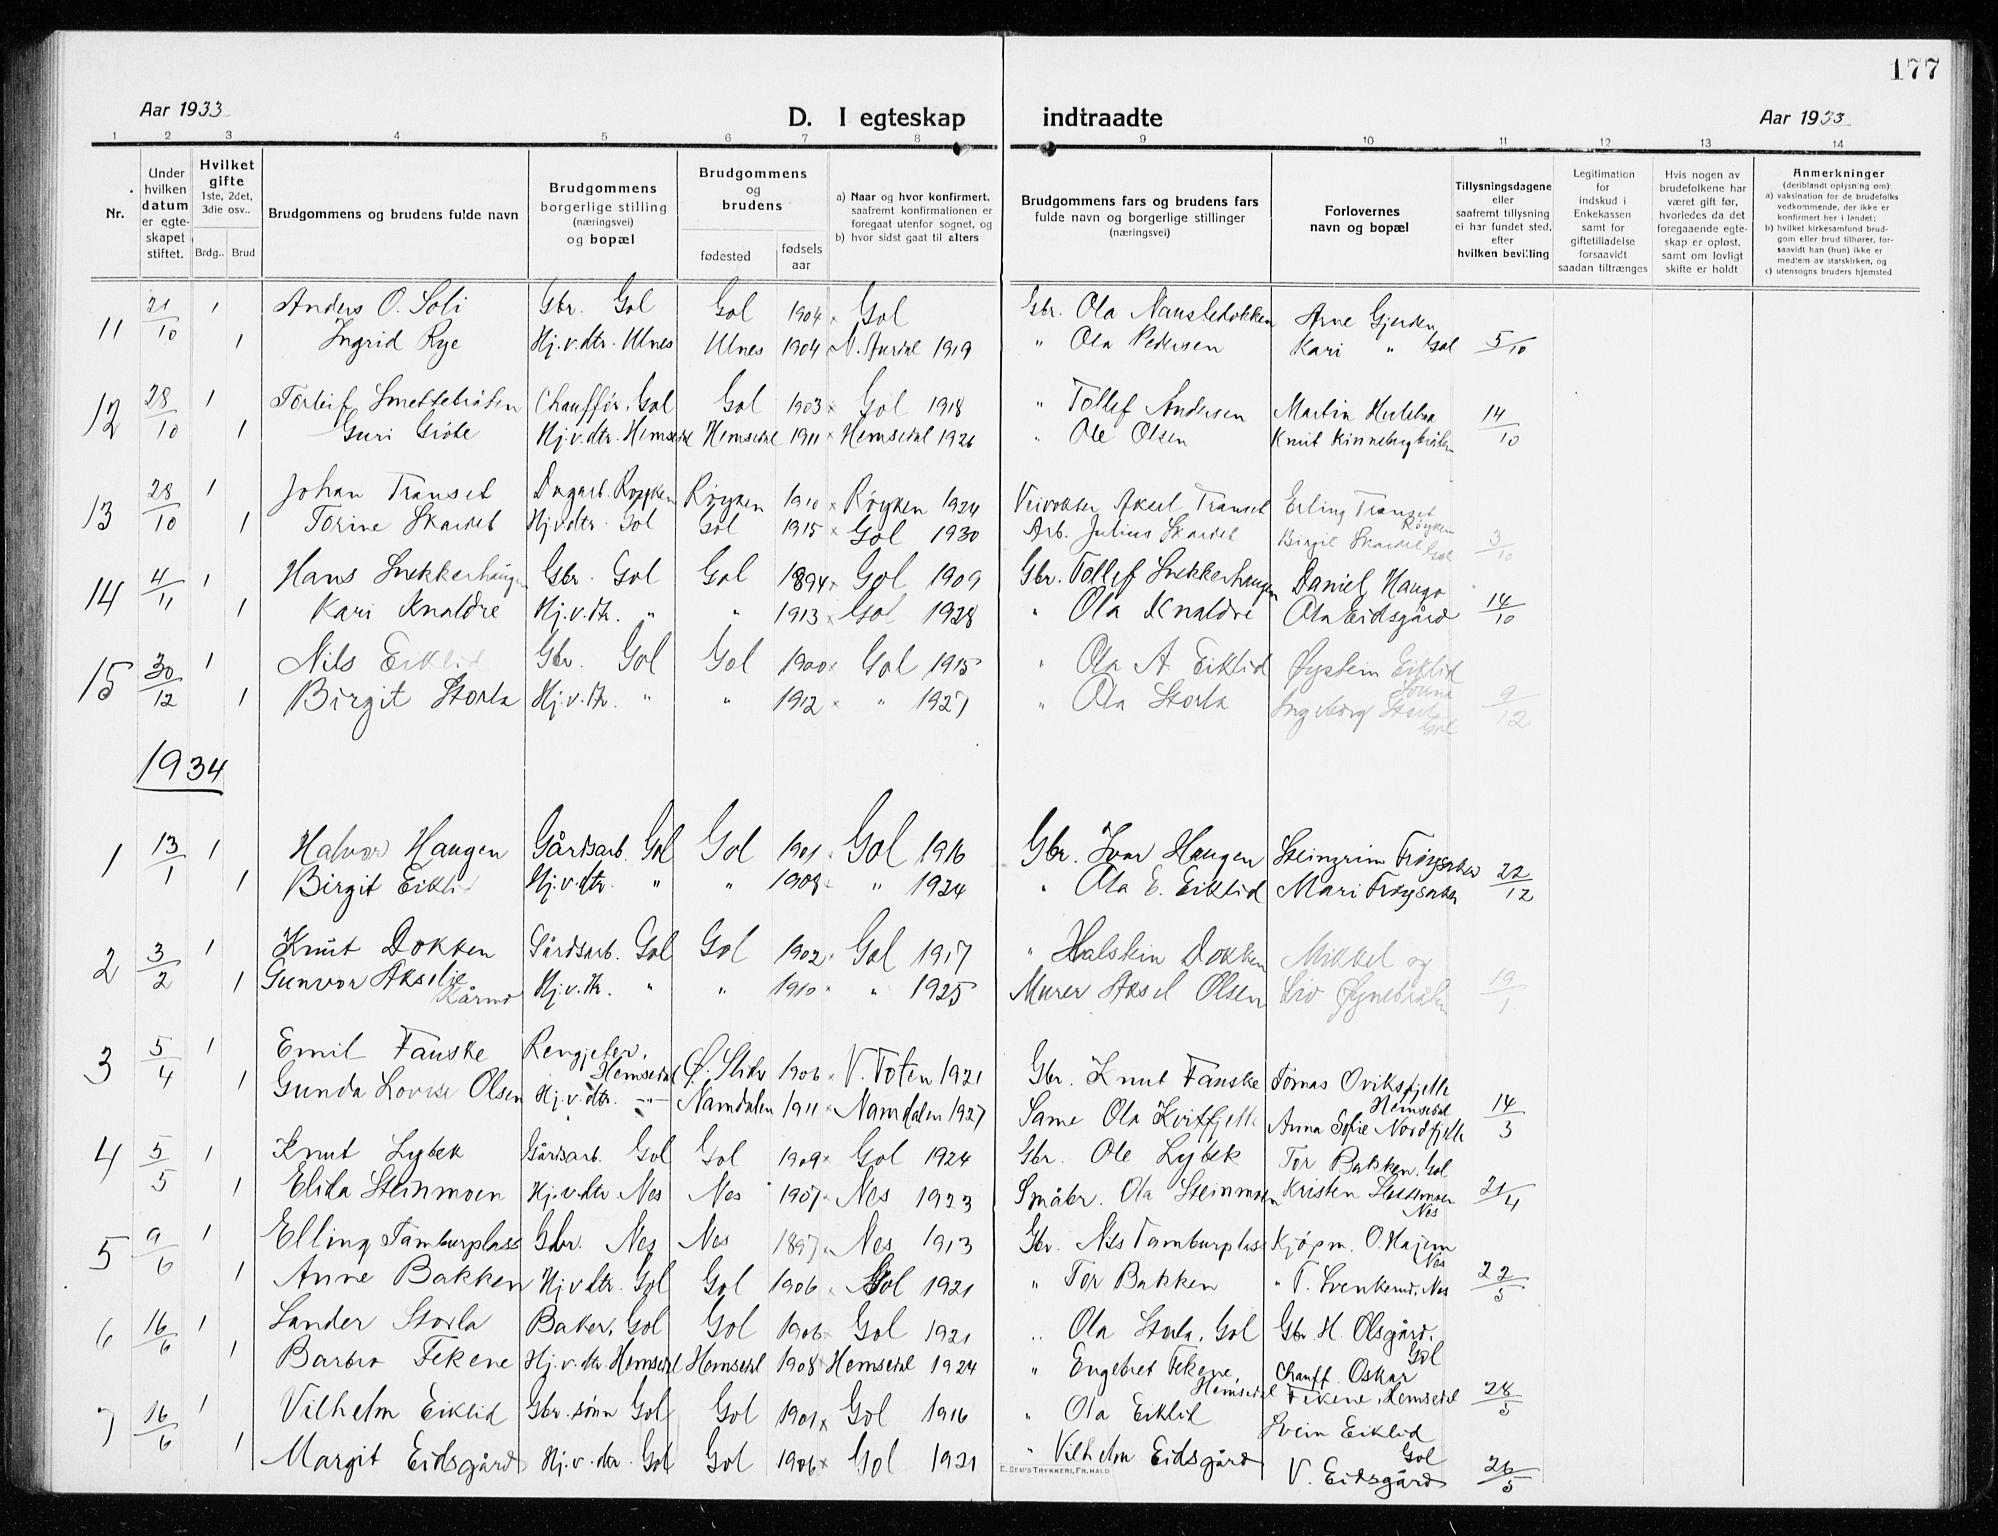 177
Aar 1933 D. I egteskap indtraadte Aar 1933
1 2 3 4 5 6 7 8 9 10 11 12 13 14
Nr.
Under hvilken datum er egteskapet stiftet.
Hvilket gifte 1ste, 2det, 3die osv.. Brdg.. Brud
Brudgommens og brudens fulde navn
Brudgommens borgerlige stilling (næringsvei) og bopæl
Brudgommens og brudens fødested fødselsaar
a) Naar og hvor konfirmert, saafremt konfirmationen er foregaat utenfor sognet, og
b) hvor sidst gaat til alters
Brudgommens fars og brudens fars fulde navn og borgerlige stillinger (næringsvei)
Forlovernes navn og bopæl
Tillysningsdagene eller saafremt tillysning ei har fundet sted, efter hvilken bevilling
Legitimation for indskud i Enkekassen samt for giftetilladelse forsaavidt saadan tiltrænges
Hvis nogen av brudefolkene har været gift før, hvorledes da det foregaaende egteskap er opløst, samt om lovligt skifte er holdt
Anmerkninger (deriblandt oplysning om):
a) vaksination for de brudefolks vedkommende, der ikke er konfirmert her i landet;
b) hvilket kirkesamfund brudgom eller brud tilhører, forsaavidt han (hun) ikke er medlem av statskirken, og
c) utensogns bruders hjemsted
11 21/10 1 Anders O. Soli Gbr. Gol Gol 1904 × Gol Gbr. Ola Naustedokken Arne Gjerden
1 Ingrid Rye Hj.v.dtr. Ulnes Ulnes 1904 N. Aurdal 1919 " Ola Pedersen Kari " Gol 5/10
12 28/10 1 Torleif Smettebråten Chauffør, Gol Gol 1903 × Gol 1918 " Tollef Andersen Martin 14/10
1 Guri Grøte Hj.v.dtr. Hemsedal Hemsedal 1911 × Hemsedal 1926 " Ole Olsen Knut Kinnebergbråten
13 28/10 1 Johan Transet Dagarb. Røyken Røyken 1910 × Røyken 1924 Veivokter Aksel Transet Erling Transet Røyken
1 Torine Skardet Hj.v.dtr. Gol Gol 1915 × Gol 1930 Arb. Julius Skardet Birgit Skardet Gol 3/10
14 4/11 1 Hans Snekkerhaugen Gbr. Gol Gol 1894 × Gol 1909 Gbr. Tollef Snekkerhaugen Daniel Haugo
1 Kari Knaldre Hj.v.dtr. " " 1913 × Gol 1928 " Ola Knaldre Ola Eidsgård 14/10
15 30/12 1 Nils Eiklid Gbr. Gol Gol 1900 × Gol 1915 " Ola A. Eiklid Øystein Eiklid
1 Birgit Storla Hj.v.dtr. " " 1912 × " 1927 " Ola Storla Ingeborg Gol 9/12
1934
1 13/1 1 Halvor Haugen Gårdsarb. Gol Gol 1901 × Gol 1916 Gbr. Ivar Haugen Steingrim Frøysaker
1 Birgit Eiklid Hj.v.dtr. " " 1908 " 1924 " Ola E. Eiklid Mari Frøysaker 22/12
2 3/2 1 Knut Dokken Gårdsarb. Gol Gol 1902 Gol 1917 " Halstein Dokken Mikkel og
1 Gunvor Akselie Hj.v.dtr. " " 1910 × " 1925 Murer Aksel Olsen Liv Øynebråten 19/1
3 5/4 1 Emil Fauske Rengjeter, Hemsedal Ø. Slidre 1906 × V. Toten 1921 Gbr. Knut Fauske Tomas Oviksfjelle Hemsedal
1 Gunda Lovise Olsen Hj.v.dtr. —"— Namdalen 1911 × Namdalen 1927 Same Ola Kvitfjelle Anna Sofie Nordfjelle 14/3
4 5/5 1 Knut Lybek Gårdsarb. Gol Gol 1909 × Gol 1924 Gbr. Ole Lybek Tor Bakken, Gol
1 Elida Steinmoen Hj.v.dtr. Nes Nes 1907 × Nes 1923 Småbr. Ola Steinmoen Kristen Nes 21/4
5 9/6 1 Elling Tamburplass Gbr. Nes Nes 1897 × Nes 1913 Gbr. Nils Tamburplass Kjøpm. O. Hajem Nes
1 Anne Bakken Hj.v.dtr. Gol Gol 1906 × Gol 1921 " Tor Bakken " T. Svenkerud, Nes 22/5
6 16/6 1 Sander Storla Baker, Gol Gol 1906 × Gol 1921 " Ola Storla, Gol Gbr. H. Olsgård, Gol
1 Barbro Fekene Hj.v.dtr. Hemsedal Hemsedal 1908 Hemsedal 1924 " Engebret Fekene, Hemsedal Chauff. Oskar Fekene, Hemsedal 28/5
7 16/6 1 Vilhelm Eiklid Gbr.sønn Gol Gol 1901 × Gol 1916 " Ola Eiklid Svein Eiklid Gol
1 Margit Eidsgård Hj.v.dtr. Gol Gol 1906 × Gol 1921 " Vilhelm Eidsgård V. Eidsgård 26/5
E. SEM'S TRYKKERI, FR.HALD